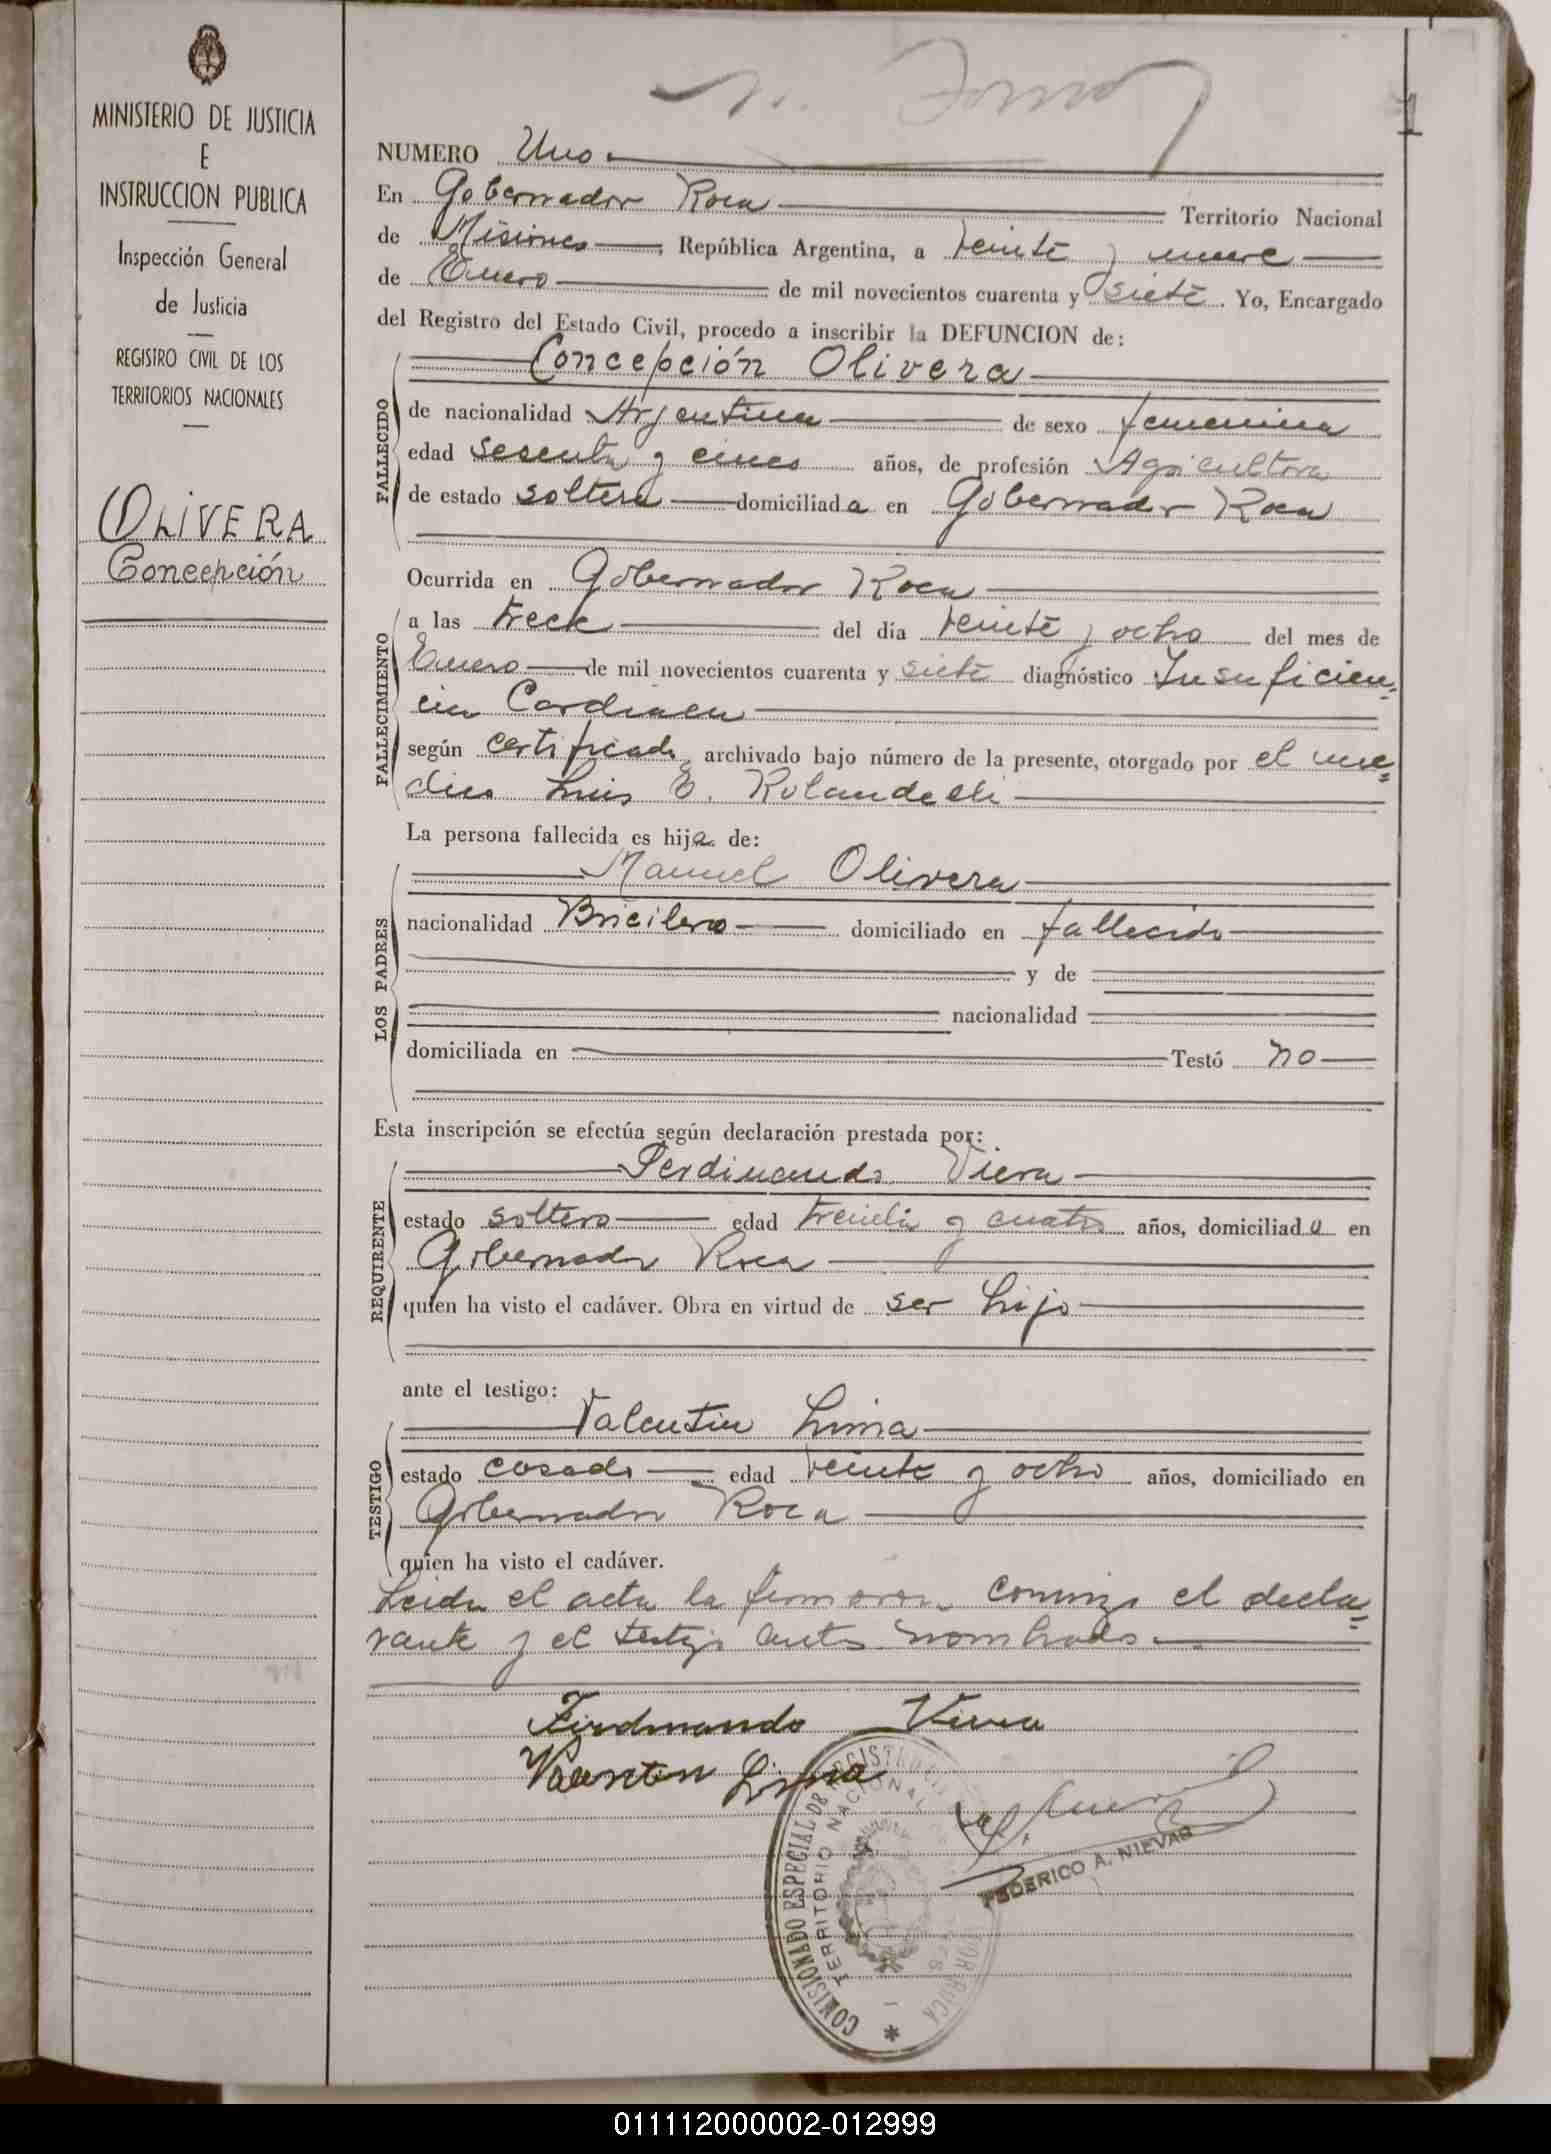 MINISTERIO DE JUSTICIA
E
INSTRUCCION PUBLICA
Inspección General
de Justicia
REGISTRO CIVIL DE LOS
TERRITORIOS NACIONALES
OLIVERA
Concepción
1
NUMERO Uno
En Gobernador Roca Territorio Nacional
de Misiones, República Argentina, a veinte y nueve
de Enero de mil novecientos cuarenta y siete. Yo, Encargado
del Registro del Estado Civil, procedo a inscribir la DEFUNCION de:
FALLECIDO
Concepción Olivera
de nacionalidad Argentina de sexo femenina
edad sesenta y cinco años, de profesión Agricultora
de estado soltera domiciliada en Gobernador Roca
FALLECIMIENTO
Ocurrida en Gobernador Roca
a las trece del día veinte y ocho del mes de
Enero de mil novecientos cuarenta y siete diagnóstico Insuficien-
cia Cardiaca
según certificado archivado bajo número de la presente, otorgado por el me-
dico Luis E. Rolandelli
LOS PADRES
La persona fallecida es hija de:
Manuel Olivera
nacionalidad Bricilero domiciliado en fallecido
y de
nacionalidad
domiciliada en Testó no
Esta inscripción se efectúa según declaración prestada por:
REQUIRENTE
Ferdinando Viera
estado soltero edad treinta y cuatro años, domiciliado en
Gobernador Roca
quien ha visto el cadáver. Obra en virtud de ser hijo
ante el testigo:
TESTIGO
Valentin Lima
estado casado edad veinte y ocho años, domiciliado en
Gobernador Roca
quien ha visto el cadáver.
Leida el acta la firmaron conmigo el decla-
rante y el testigo antes nombrado
Ferdinando Viera
Valentin Lima
COMISIONADO ESPECIAL DE REGISTRO
TERRITORIO NACIONAL
FEDERICO A. NIEVAS
011112000002-012999